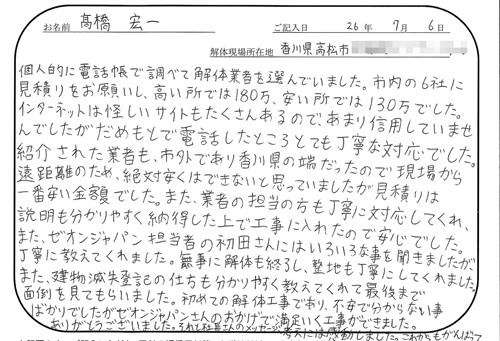 お名前 髙橋 宏一 ご記入日 26年 7月 6日
解体現場所在地 香川県高松市
個人的に電話帳で調べて解体業者を選んでいました。市内の6社に
見積りをお願いし、高い所では180万、安い所では130万でした。
インターネットは怪しいサイトもたくさんあるので、あまり信用していませ
んでしたがだめもとで電話したところとても丁寧な対応でした。
紹介された業者も、市外であり香川県の端だったので現場から
遠距離のため、絶対安くはできないと思っていましたが見積りは
一番安い金額でした。また、業者の担当の方も丁寧に対応してくれ、
説明も分かりやすく納得した上で工事に入れたので安心でした。
また、ゼオンジャパン担当者の初田さんにはいろいろな事を聞きましたが、
丁寧に教えてくれました。無事に解体も終るし、整地も丁寧にしてくれました。
また、建物滅失登記の仕方も分かりやすく教えてくれて最後まで
面倒を見てもらいました。初めての解体工事であり、不安で分からない事
ばかりでしたがゼオンジャパンさんのおかげで満足いく工事ができました。
ありがとうございました。それと社長さんのメッセージ、考えには感動しました。これからもがんばって